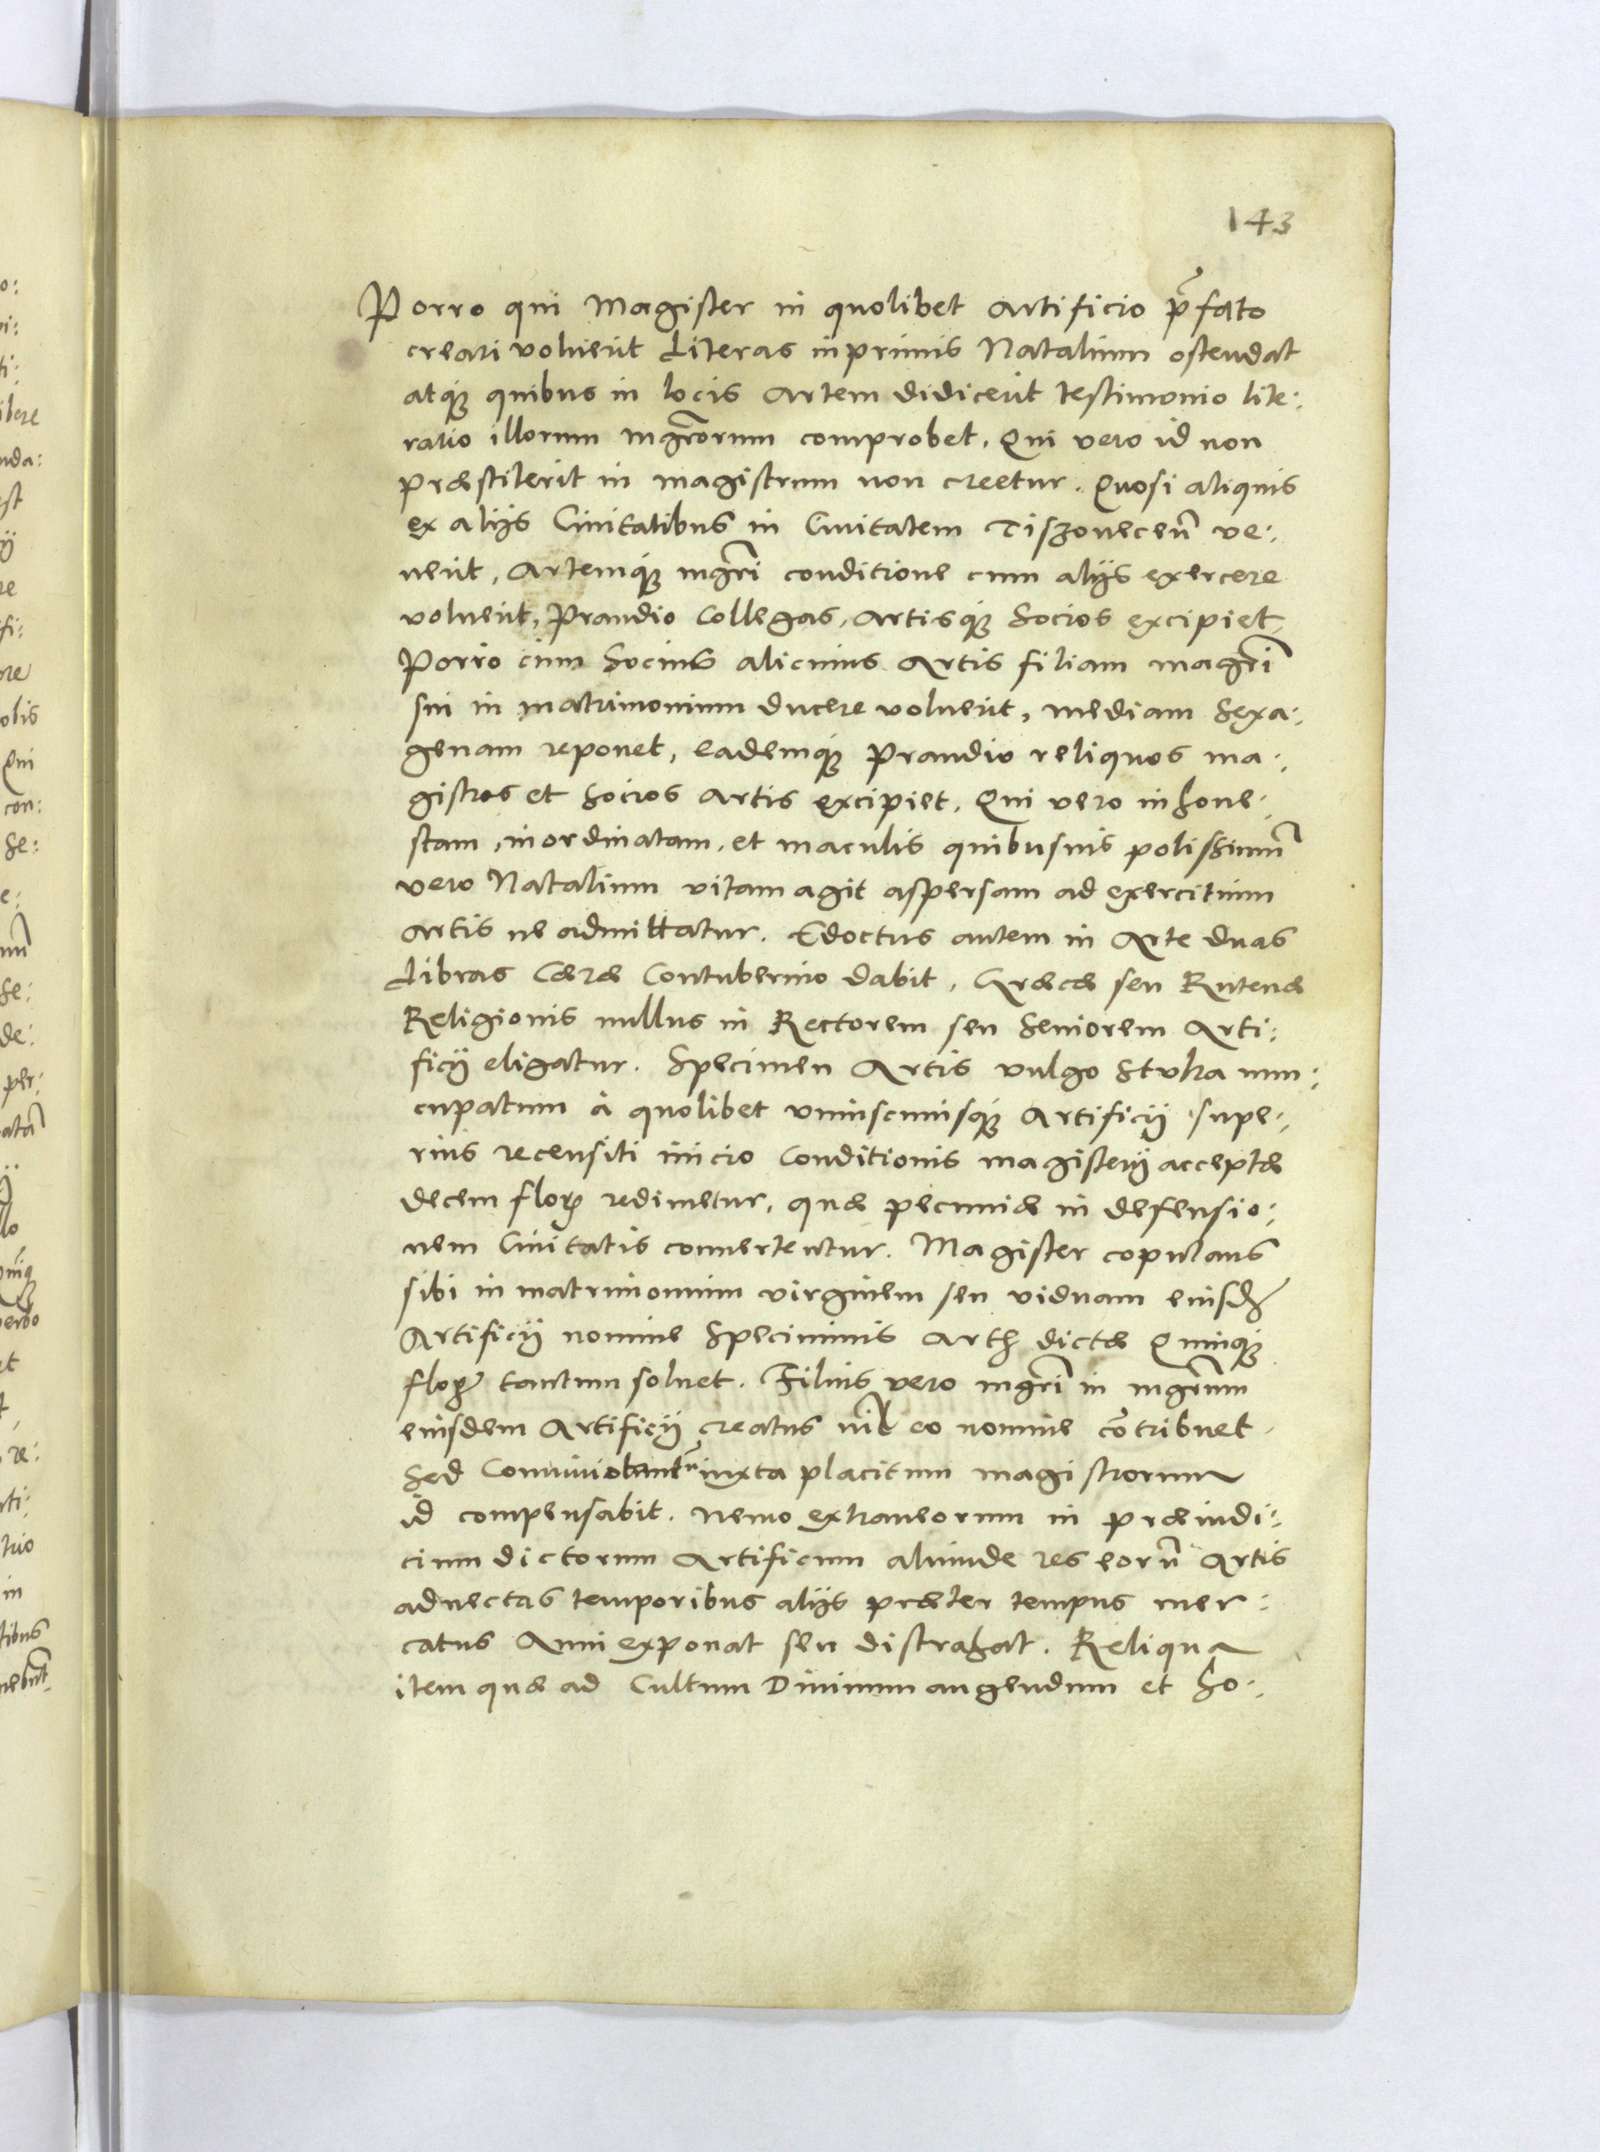 143
Porro qui Magister in quolibet Artificio p̃fato
creari voluerit Literas inprimis Natalium ostendat
atq́ȝ quibus in locis Artem didicerit testimonio lite:
ratio illorum mgr̃orum comprobet. Qui vero id non
præstiterit in magistrum non creetur. Quosi aliquis
ex alijs Civitatibus in Civitatem Tiszovecen̄ ve:
nerit, Artemq́ȝ mgr̃i conditione cum alijs exercere
voluerit, Prandio Collegas, Artisq́ȝ Socios excipiet.
Porro cum Socius alicuius Artis filiam magr̃i
sui in matrimonium ducere voluerit, mediam Sexa:
genam reponet, eademq́ȝ Prandio reliquos ma:
gistros et Socios Artis excipiet. Qui vero inhone:
stam, inordinatam, et maculis quibusuis polissimū
vero Natalium vitam agit aspersam ad exercitium
Artis ne admittatur. Edoctus autem in Arte duas
Libras Cæræ Contubernio dabit. Græcæ seu Rutenæ
Religionis nullus in Rectorem seu Seniorem Arti:
ficij eligatur. Specimen Artis vulgo Stuka nun:
cupatum à quolibet uniuscuiusq́ȝ Artificij supe:
rius recensiti inicio Conditionis magisterij acceptæ
decem flor̃ redimetur, quæ pecuniæ in defensio:
nem Civitatis convertentur. Magister copulans
sibi in matrimonium virginem seu viduam eiusd̃
Artificij nomine Speciminis Artȝ dictæ Quinq́ȝ
flor̃ tantum soluet. Filius vero mgr̃i in mgr̃um
eiusdem Artificij creatus nil eo nomine cõtribuet
Sed Convivio iuxta placitum magistrorum
id compensabit. Nemo extraneorum in præiudi:
cium dictorum Artificum aliunde res eorū Artis
advectas temporibus alijs præter tempus mer:
catus Anni exponat seu distrahat. Reliqua
item quæ ad Cultum Divinum augendum et ho: